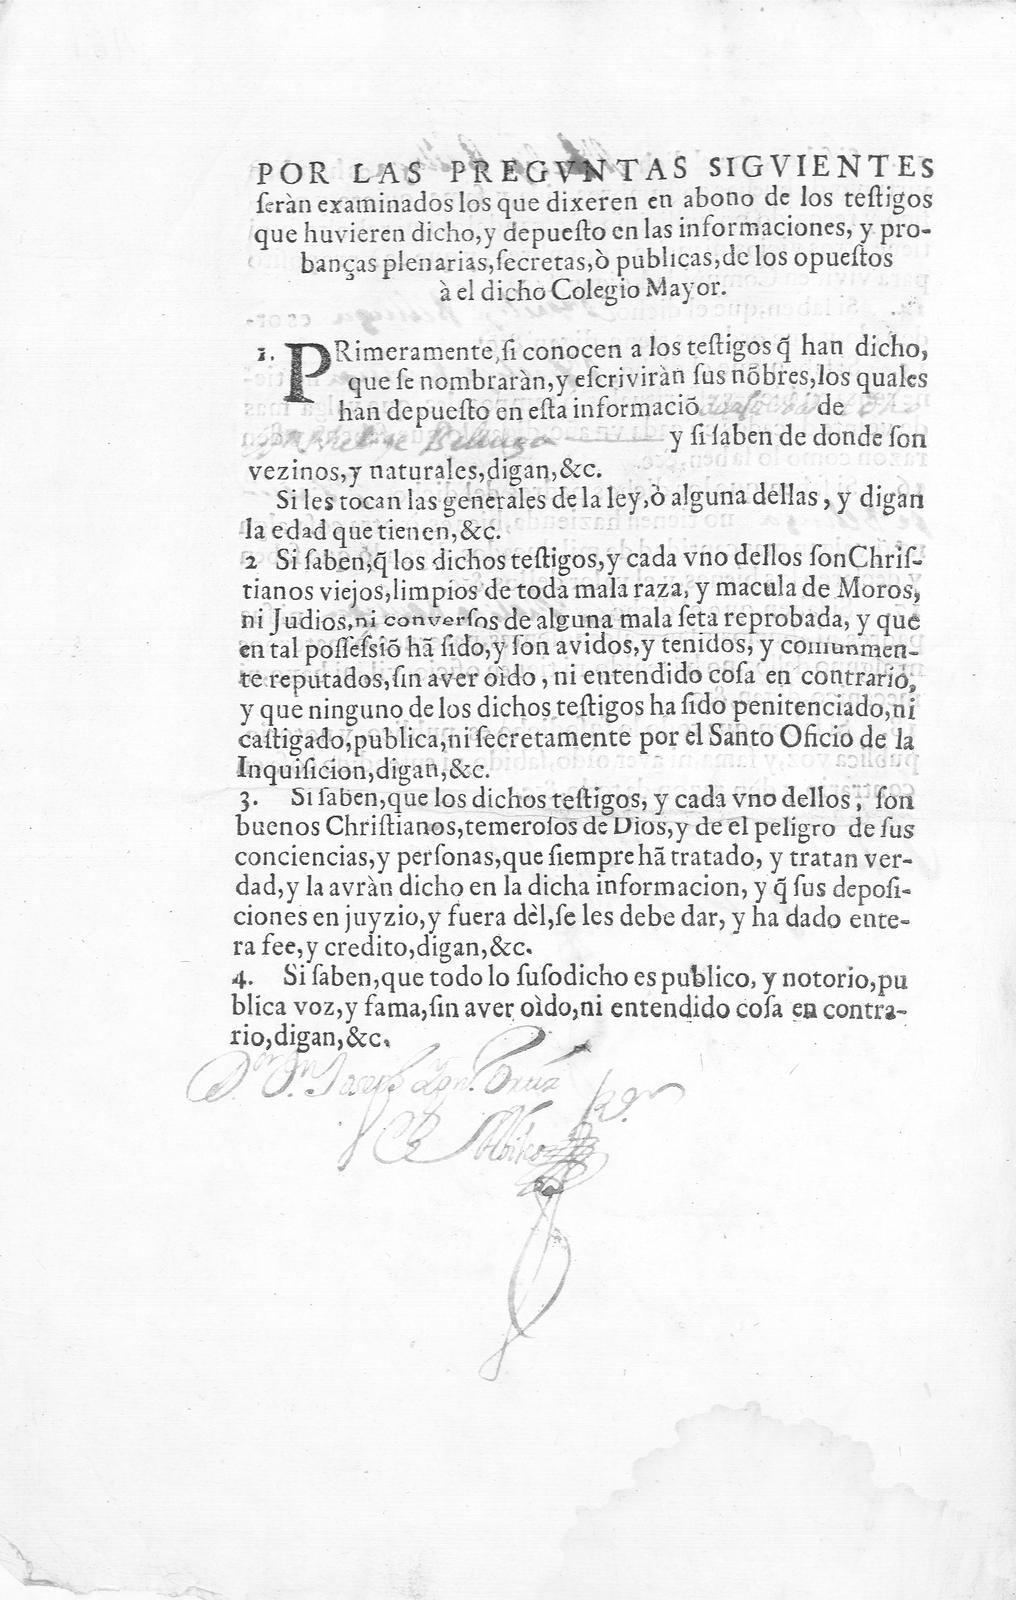 POR LAS PREGVNTAS SIGVIENTES
ſeràn examinados los que dixeren en abono de los teſtigos
que huvieren dicho,y depueſto en las informaciones, y pro-
banças plenarias,ſecretas,ò publicas,de los opueſtos
à el dicho Colegio Mayor.
1. PRimeramente,ſi conocen a los teſtigos q̃ han dicho,
que ſe nombraràn,y eſcriviràn ſus nõbres,los quales
han depueſto en eſta informaciõ de
Beluga y ſi ſaben de donde ſon
vezinos,y naturales,digan,&c.
Si les tocan las generales de la ley,ò alguna dellas, y digan
la edad que tienen,&c.
2 Si ſaben,q̃ los dichos teſtigos,y cada vno dellos ſonChriſ-
tianos viejos,limpios de toda mala raza, y macula de Moros,
ni Judios,ni converſos de alguna mala ſeta reprobada, y que
en tal poſſeſsiõ hã ſido,y ſon avidos,y tenidos, y comunmen-
te reputados,ſin aver oìdo, ni entendido coſa en contrario,
y que ninguno de los dichos teſtigos ha ſido penitenciado,ni
caſtigado,publica,ni ſecretamente por el Santo Oficio de la
Inquiſicion,digan,&c.
3. Si ſaben,que los dichos teſtigos, y cada vno dellos, ſon
buenos Chriſtianos,temeroſos de Dios,y de el peligro de ſus
conciencias,y perſonas,que ſiempre hã tratado, y tratan ver-
dad,y la avràn dicho en la dicha informacion, y q̃ ſus depoſi-
ciones en juyzio,y fuera dèl,ſe les debe dar, y ha dado ente-
ra fee,y credito,digan,&c.
4. Si ſaben,que todo lo ſuſodicho es publico, y notorio,pu
blica voz,y fama,ſin aver oìdo,ni entendido coſa en contra-
rio,digan,&c.